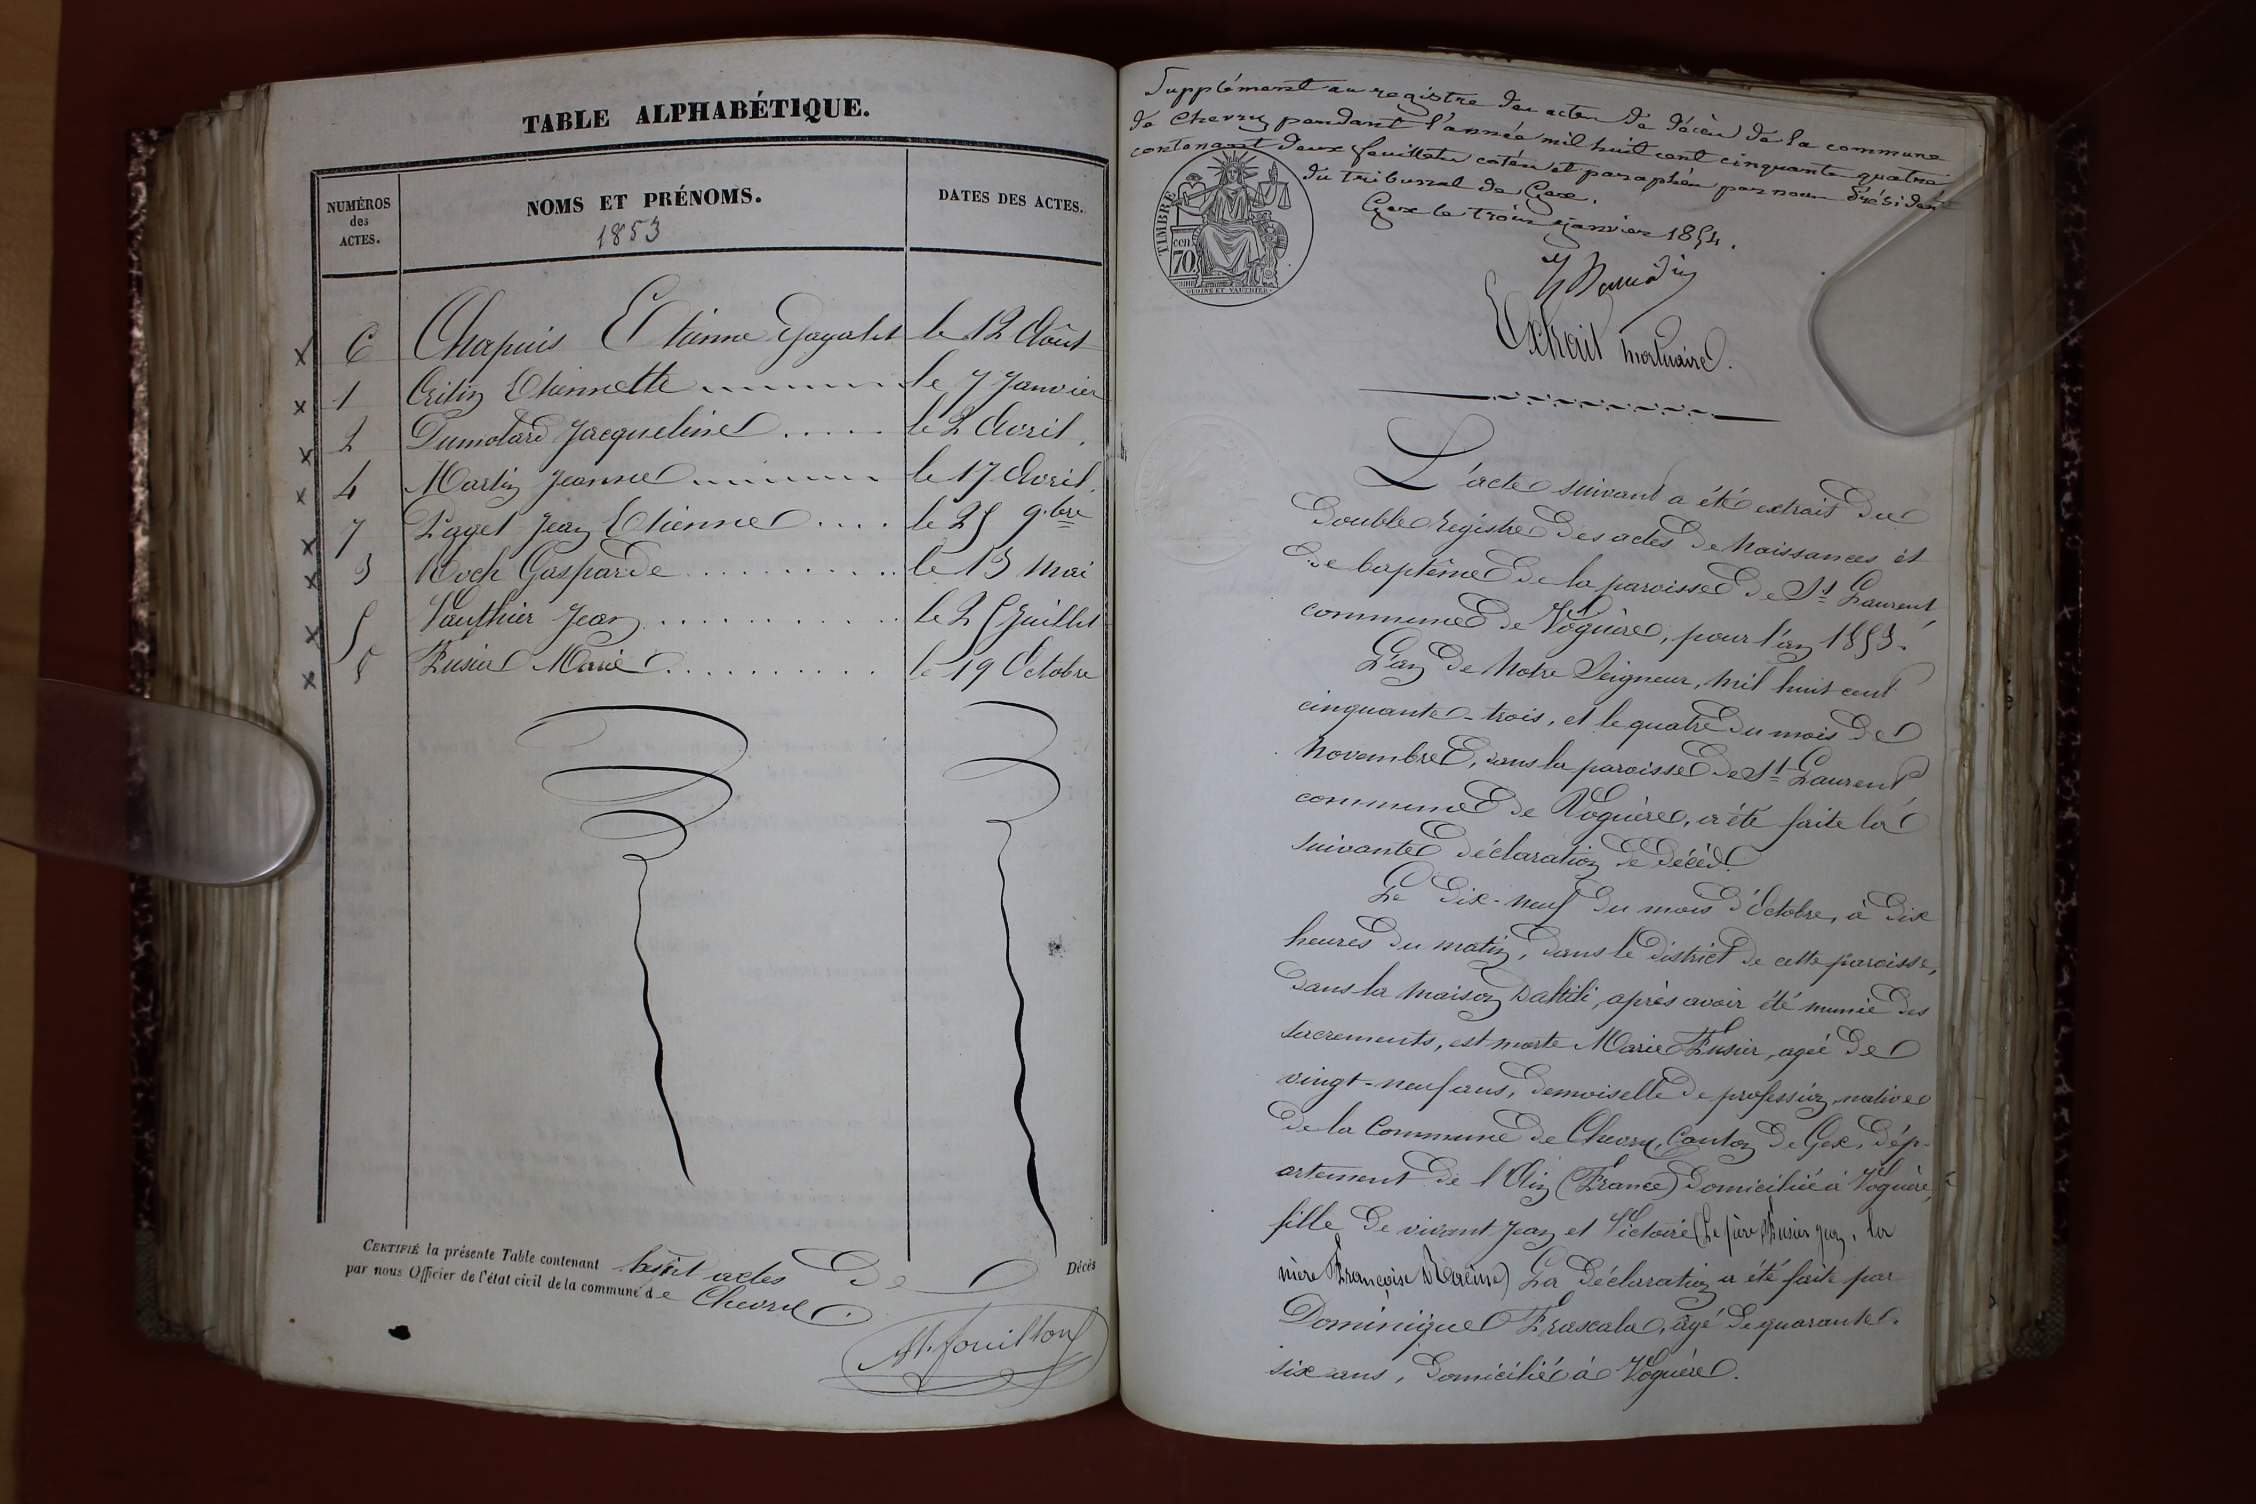 TABLE ALPHABÉTIQUE.
NUMÉROS des ACTES.
NOMS ET PRÉNOMS.
1853
DATES DES ACTES.
6 Chapuis Etienne le 12 Août
1 Critin Etiennette le 7 Janvier
2 Dumolard Jacqueline le 2 Avril.
4 Martin Jeanne le 17 Avril.
7 Paget Jean Etienne le 25 9.bre
3 Roch Gasparde le 13 mai
5 Vauthier Jean le 25 Juillet
8 Fusier Marie le 19 Octobre
CERTIFIÉ la présente Table contenant huit actes de Décès
par nous Officier de l'état civil de la commune de Chevry.
Supplément au registre des actes de décès de la commune
de Chevry pendant l'année mil huit cent cinquante quatre
contenant deux feuillets cotés et paraphés par nous Président
du tribunal de Gex.
Gex le trois janvier 1854.
TIMBRE
70 cen.
Extrait mortuaire.
L'acte suivant a été extrait du
double registre des actes de naissances et
de baptême de la paroisse de St Laurent,
commune de Voguère, pour l'an 1853.
L'an de Notre Seigneur, mil huit cent
cinquante-trois, et le quatre du mois de
Novembre, dans la paroisse de St Laurent
commune de Voguère, a été faite la
suivante déclaration de décès.
Le dix-neuf du mois d'Octobre, à dix
heures du matin, dans le district de cette paroisse,
dans la maison Dattili, après avoir été munie des
sacrements, est morte Marie Fusier, agée de
vingt-neuf ans, demoiselle de profession, native
de la Commune de Chevry, Canton de Gex, dép-
artement de l'Ain (France) domiciliée à Voguère,
fille de vivant Jean et Victoire (Le père Fusier Jean, la
mère Françoise Racine) La déclaration a été faite par
Dominique Frascala, âgé de quarante-
six ans, domicilié à Voguère.